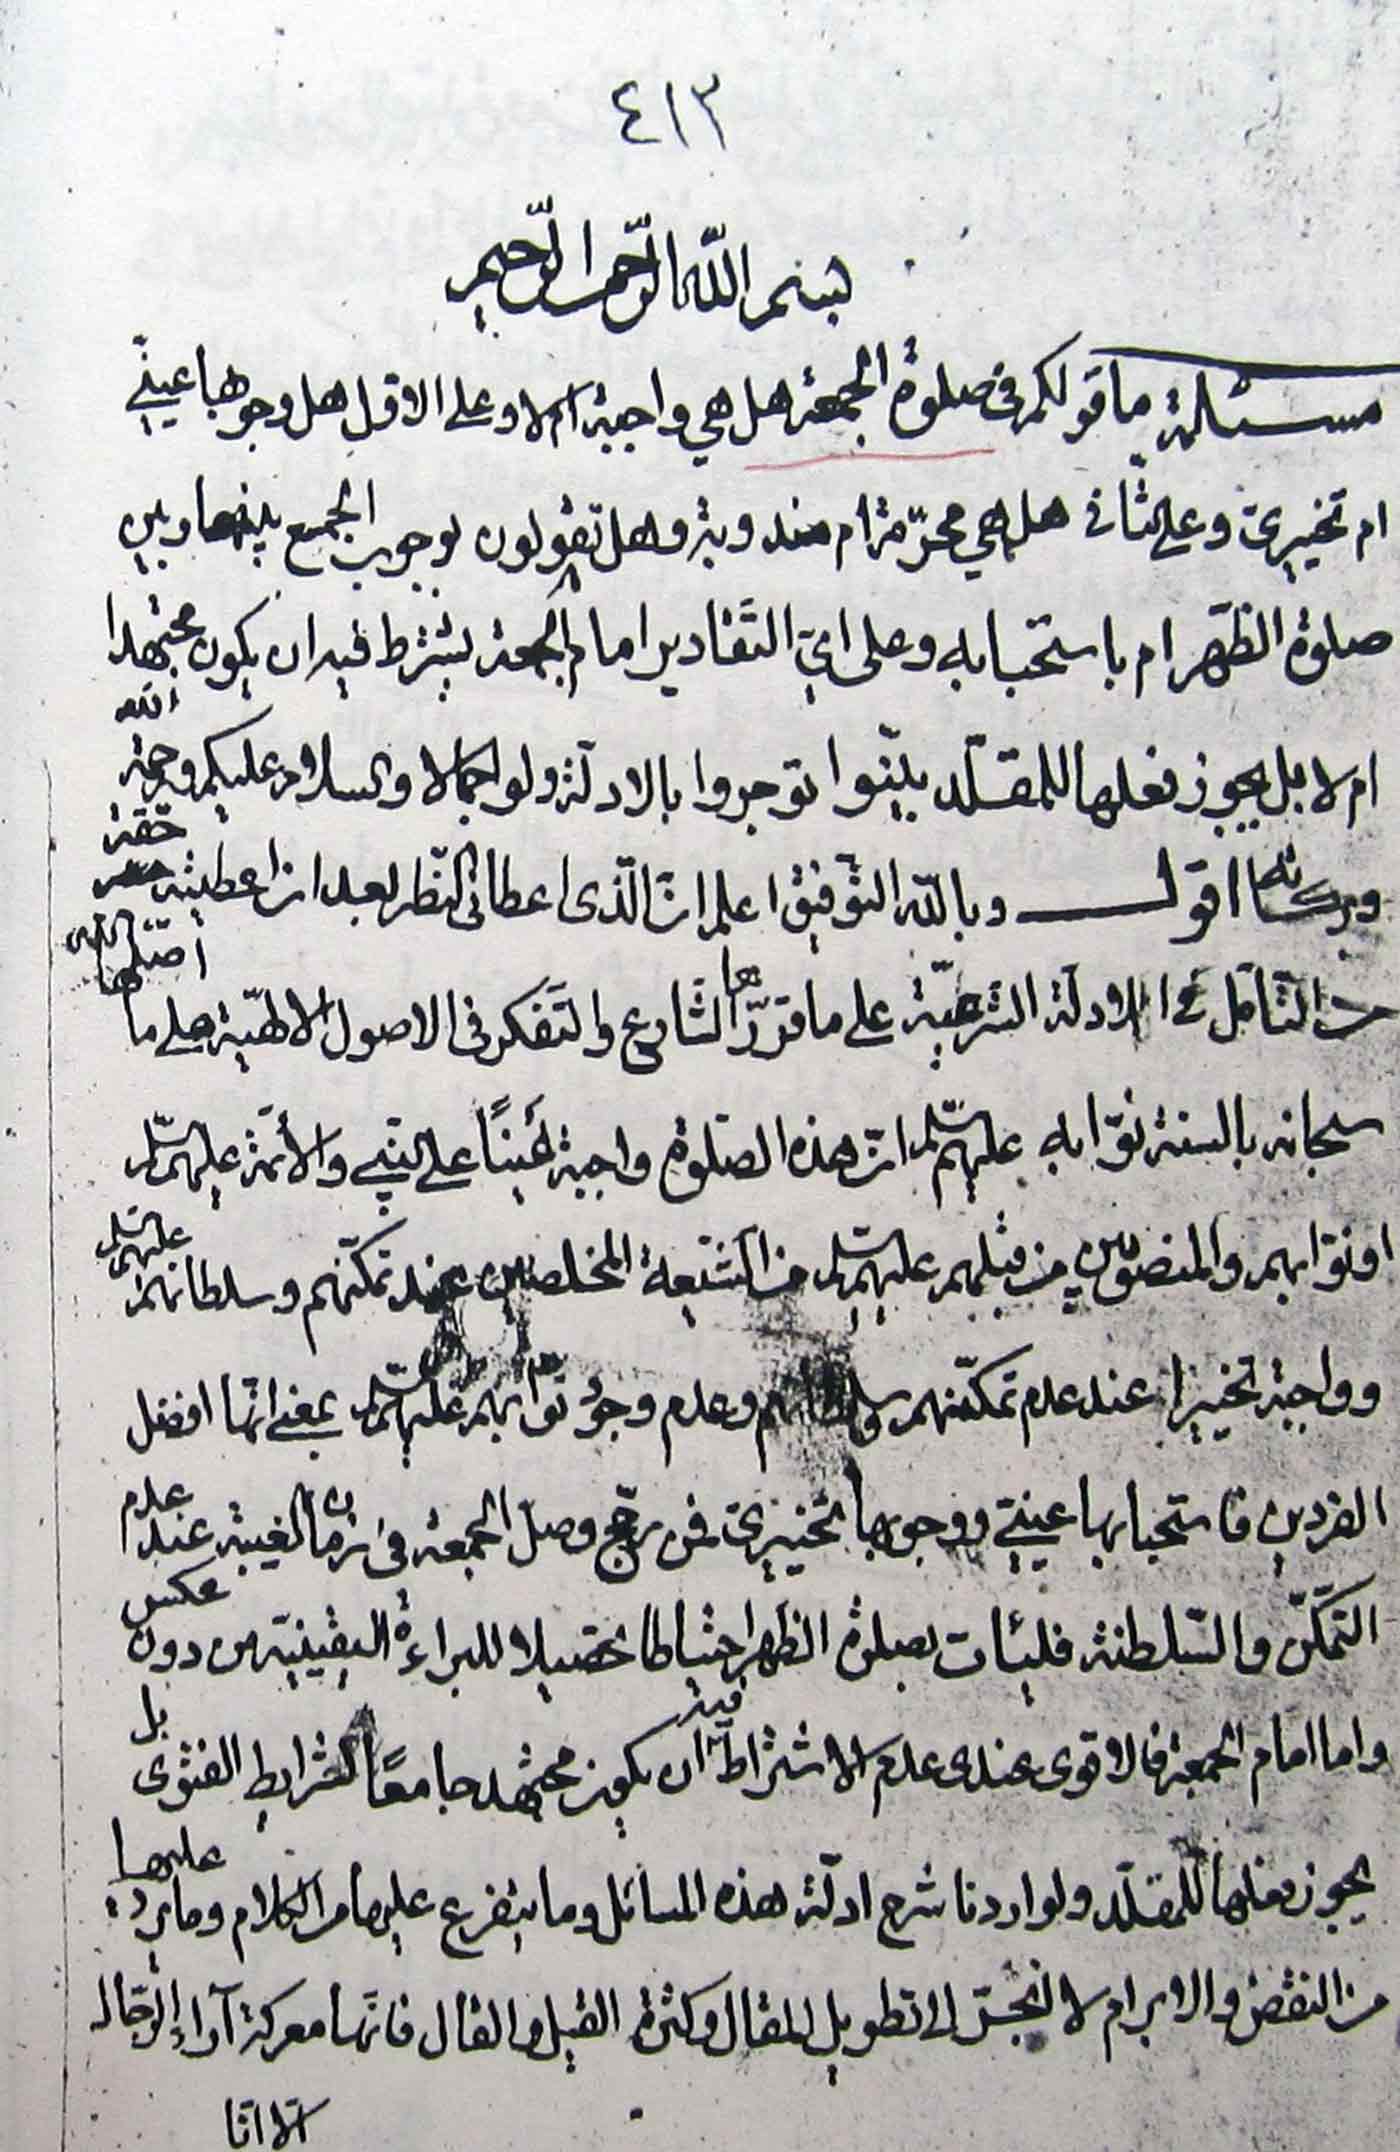 ٤١٣
بسم الله الرحمن الرحيم
مسئلة ما قولكم في صلوة الجمعة هل هي واجبة ام لا وعلى الاول هل وجوبها عينيّ
ام تخييري وعلى الثاني هل هي محرّمة ام مندوبة وهل تقولون بوجوب الجمع بينها وبين
صلوة الظّهر ام باستحبابه وعلى ايّ التّقادير امام الجمعة يشترط فيه ان يكون مجتهدا
ام لا بل يجوز فعلها للمقلّد بيّنوا توجروا بالادلّة ولو اجمالا والسلام عليكم ورحمة الله
وبركاته اقول وبالله التّوفيق اعلم انّ الّذى اعطانى النّظر بعد ان اعطيته حقّه
من التّأمّل في الادلّة الشّرعيّة على ما قرّرها الشّارع والتّفكر فى الاصول الالهيّة على ما اصّلها الله
سبحانه بالسنة نوّابه عليهم السّلم انّ هذه الصّلوة واجبة عينًا على النّبي والأئمّة عليهم السّلم
او نوّابهم والمنصوبين من قبلهم عليهم السّلم من الشّيعة المخلصين عند تمكّنهم وسلطانهم عليهم السّلم
وواجبة تخييرا عند عدم تمكّنهم وسلطانهم وعدم وجود نوّابهم عليهم السّلم بمعنى انّها افضل
الفردين فاستحبابها عينيّ ووجوبها تخييري فمن رجّح وصلّى الجمعة في زمان الغيبة عند عدم
التّمكّن والسّلطنة فليأت بصلوة الظّهر احتياطا تحصيلا للبراءة اليقينيّة من دون عكس
واما امام الجمعة فالاقوى عندى عدم الاشتراط فيه ان يكون مجتهد جامعًا لشرايط الفتوى بل
يجوز فعلها للمقلّد ولو اردنا شرح ادلّة هذه المسائل وما يتفرع عليها من الكلام وما يرد عليها
من النقض والابرام لانجرّ الى تطويل المقال وكثرة القيل والقال فانّها معركة آراء الرّجال
الا انّا